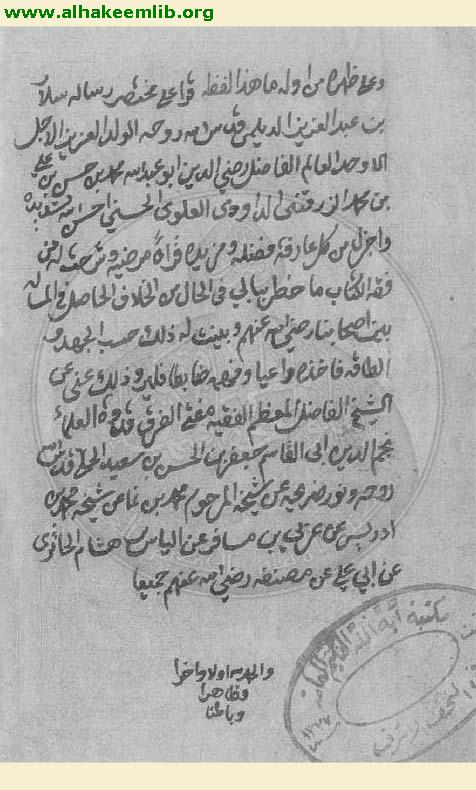 www.alhakeemlib.org
وعلى ظهره من اوله ما هذا لفظه قرا علي مختصر رساله سلار
بن عبد العزيز الديلمي قدس الله روحه الولد العزيز الاجل
الاوحد العالم الفاضل رضي الدين ابو عبد الله محمد بن حسن بن علي
بن محمد الداودي العلوي الحسني احسن الله
واجزل من كل عارفة فضله ومزيده قراة مرضية وشرحت له من
فقه الكتاب ما خطر ببالي في الحال من الخلاف الحاصل في المساله
بين اصحابنا رضي الله عنهم وبينت له ذلك حسب الجهد و
الطاقه فاخذه واعيا وفهمه ضابطا فليرو ذلك عني عن
الشيخ الفاضل المعظم الفقيه مفتي الفرق قدوة العلماء
نجم الدين ابي القاسم جعفر بن الحسن بن سعيد الحلي قدس الله
روحه ونور ضريحه عن شيخه المرحوم محمد بن نما عن شيخه محمد بن
ادريس عن عربي بن مسافر عن الياس بن هشام الحائري
عن ابي علي عن مصنفه رضي الله عنهم جميعا
والحمد لله اولا واخرا
وظاهرا
وباطنا
مكتبة آية الله الحكيم العامة
النجف الاشرف